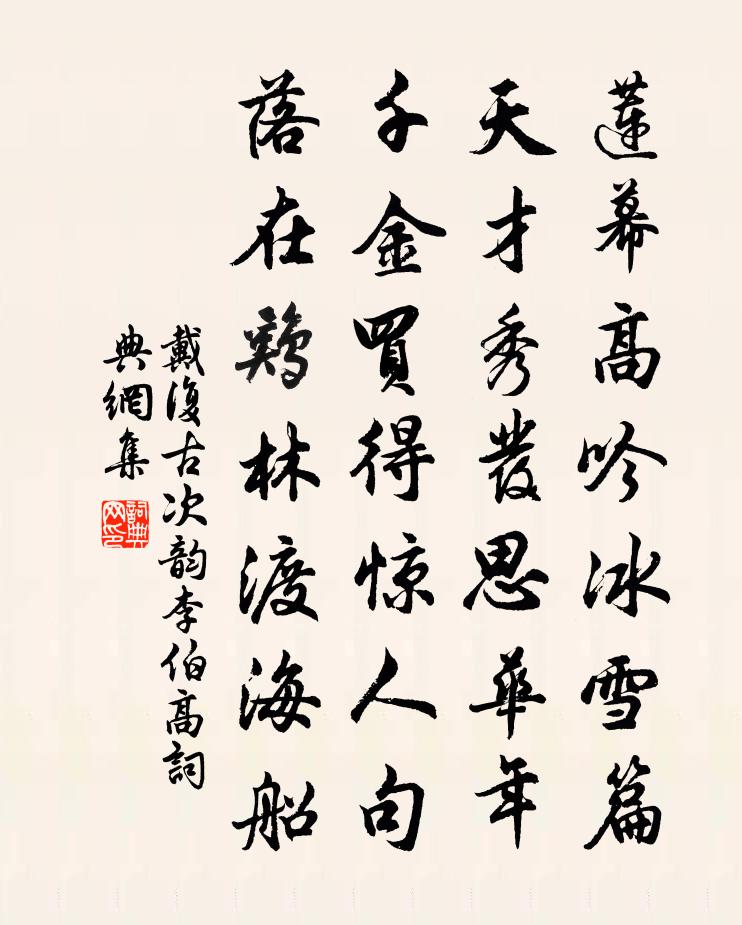 蓮幕高吟冰雪篇
天才秀發思華年
千金買得惊人句
落在鷄林渡海船
戴復古次韵李伯高詞
典網集
詞典网印